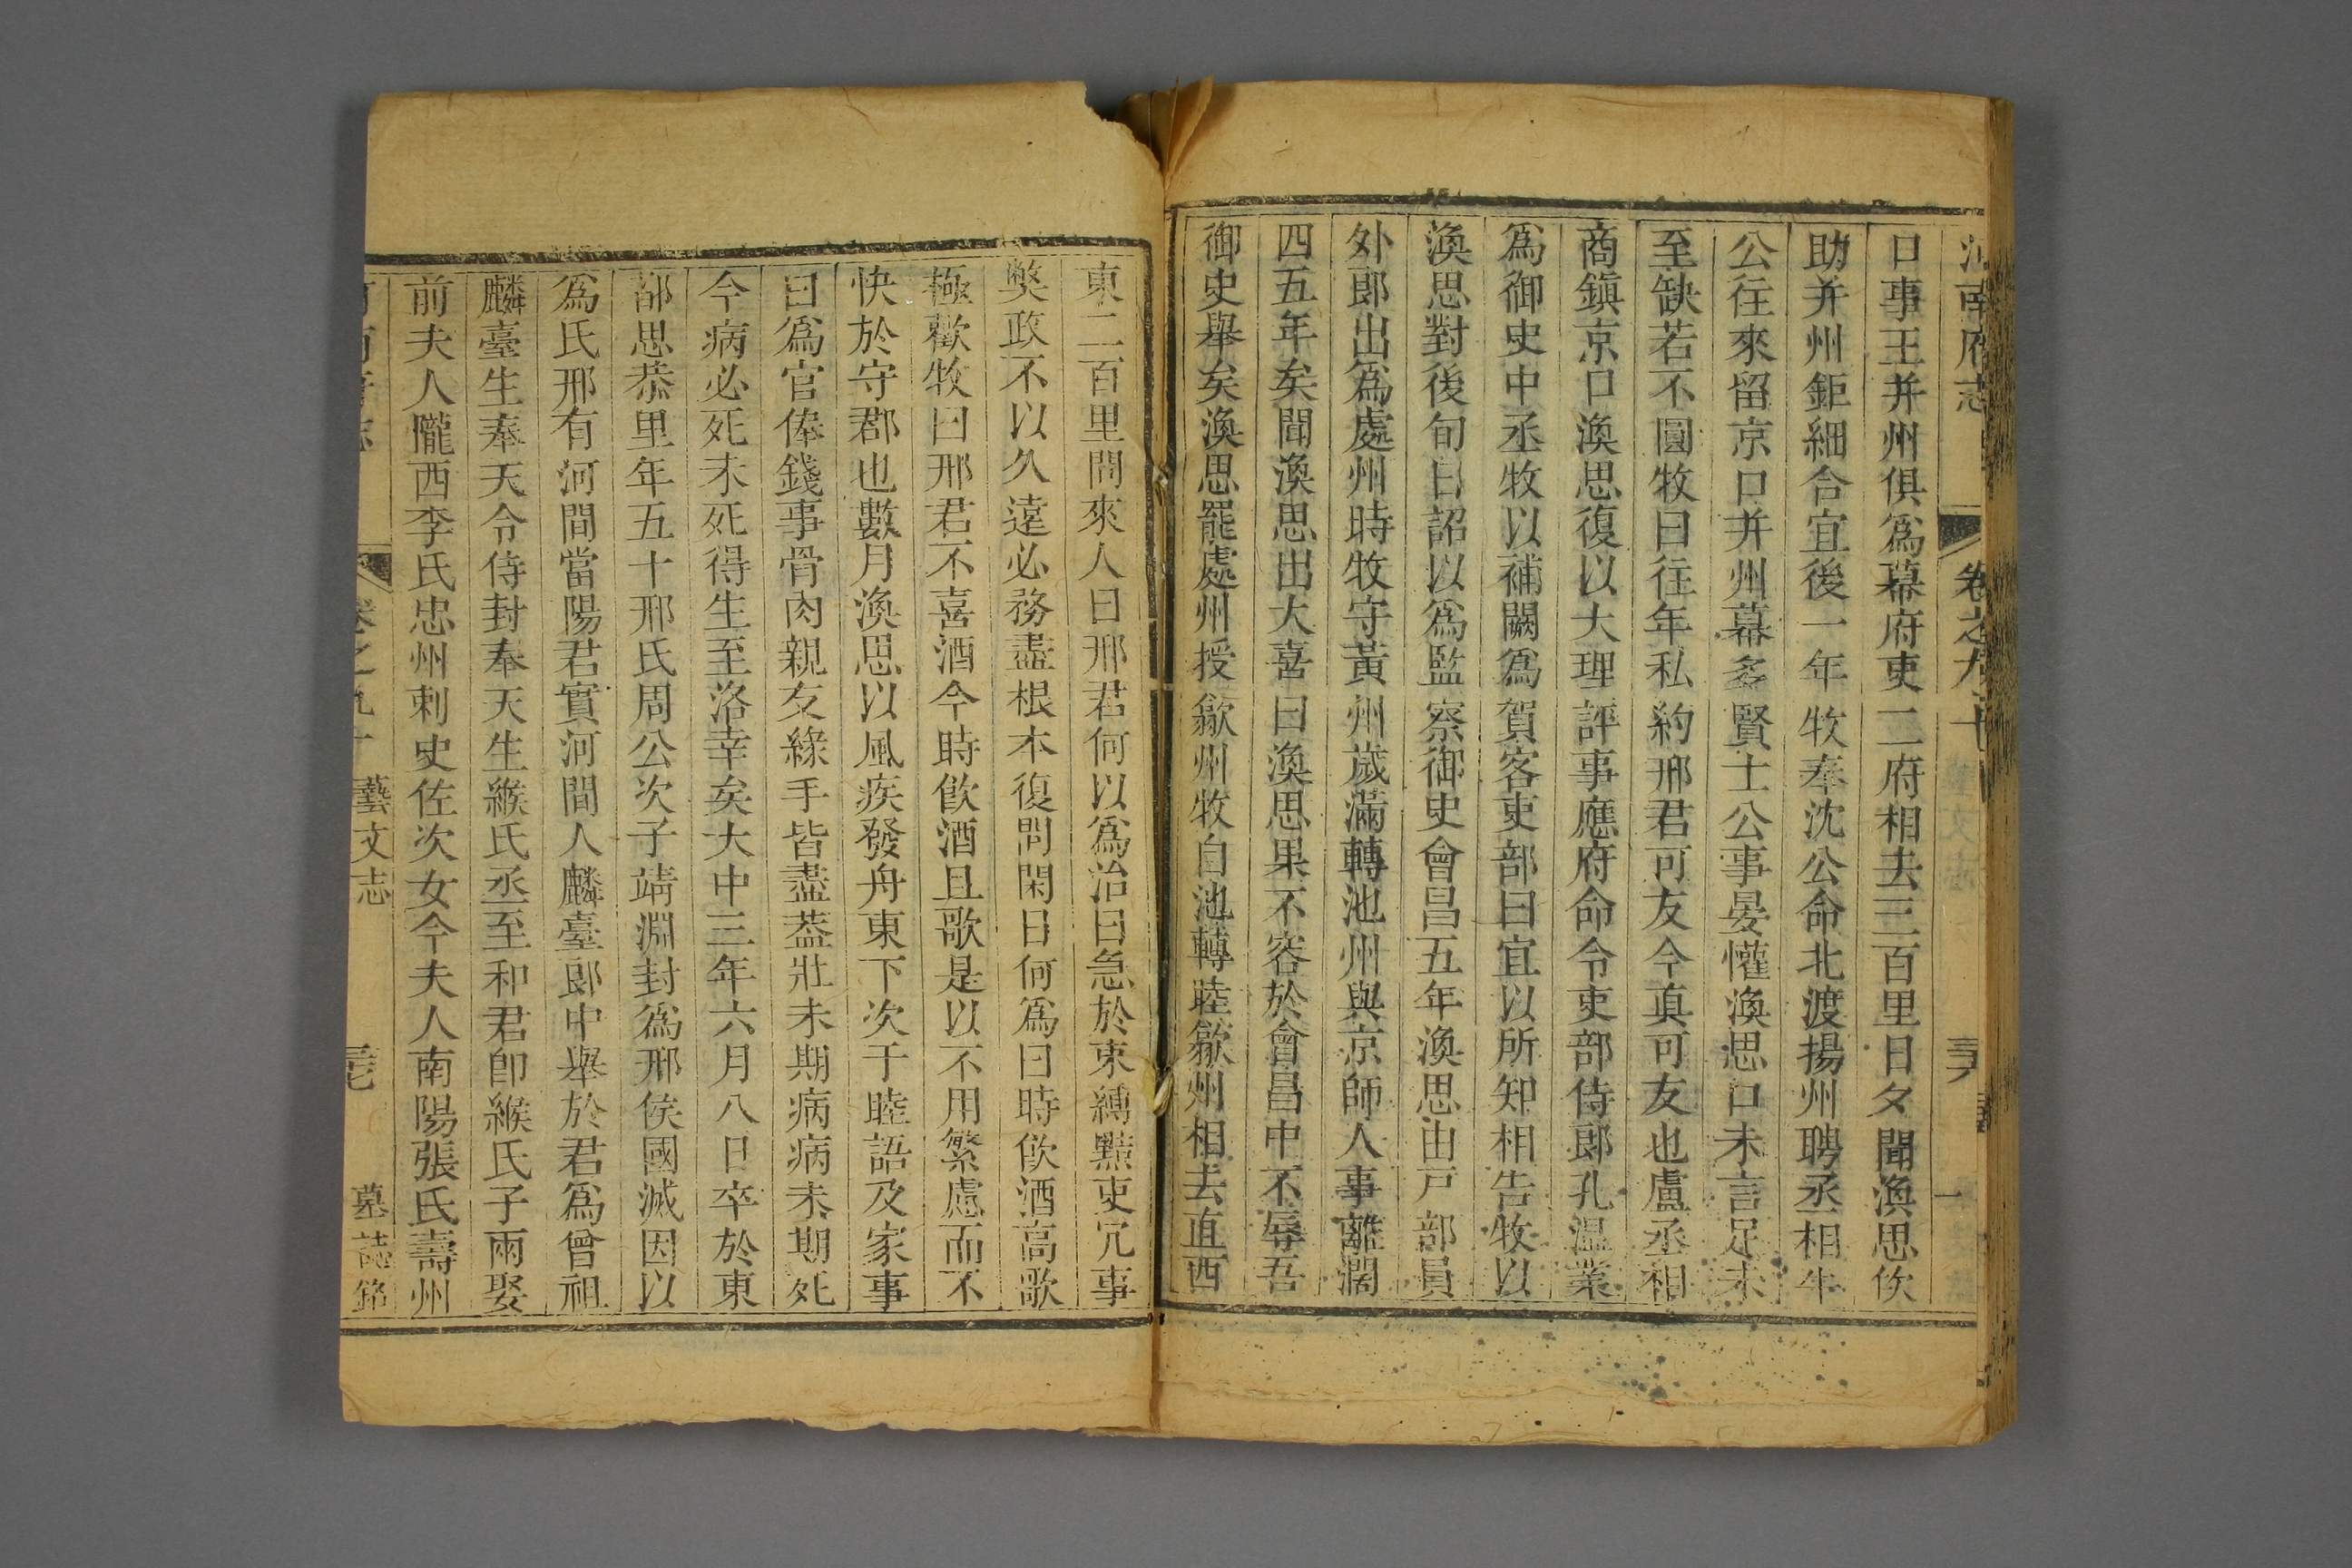 河南府志 卷之九十
口事王并州俱爲幕府吏二府相去三百里日夕聞渙思佚
助并州鉅細合宜後一年牧奉沈公命北渡揚州聘丞相牛
公往來留京口并州幕多賢士公事晏懽渙思口未言足未
至缺若不圓牧曰往年私約邢君可友今真可友也盧丞相
商鎮京口渙思復以大理評事應府命今吏部侍郎孔温業
爲御史中丞牧以補闕爲賀客吏部曰宜以所知相告牧以
渙思對後旬日詔以爲監察御史會昌五年渙思由戸部員
外郎出爲處州時牧守黃州歲滿轉池州與京師人事離濶
四五年矣聞渙思出大喜曰渙思果不容於會昌中不辱吾
御史舉矣渙思罷處州授歙州牧自池轉睦歙州相去直西
東二百里問來人曰邢君何以爲治曰急於束縛黠吏冗事
弊政不以久遠必務盡根本復問閑日何爲曰時飲酒高歌
極歡牧曰邢君不喜酒今時飲酒且歌是以不用繁慮而不
快於守郡也數月渙思以風疾發舟東下次于睦語及家事
曰爲官俸錢事骨肉親友緣手皆盡葢壯未期病病未期死
今病必死未死得生至洛幸矣大中三年六月八日卒於東
都思恭里年五十邢氏周公次子靖淵封爲邢侯國滅因以
爲氏邢有河間當陽君實河間人麟臺郎中舉於君爲曾祖
麟臺生奉天令侍封奉天生緱氏丞至和君卽緱氏子兩娶
前夫人隴西李氏忠州刺史佐次女今夫人南陽張氏壽州
藝文志 墓誌銘